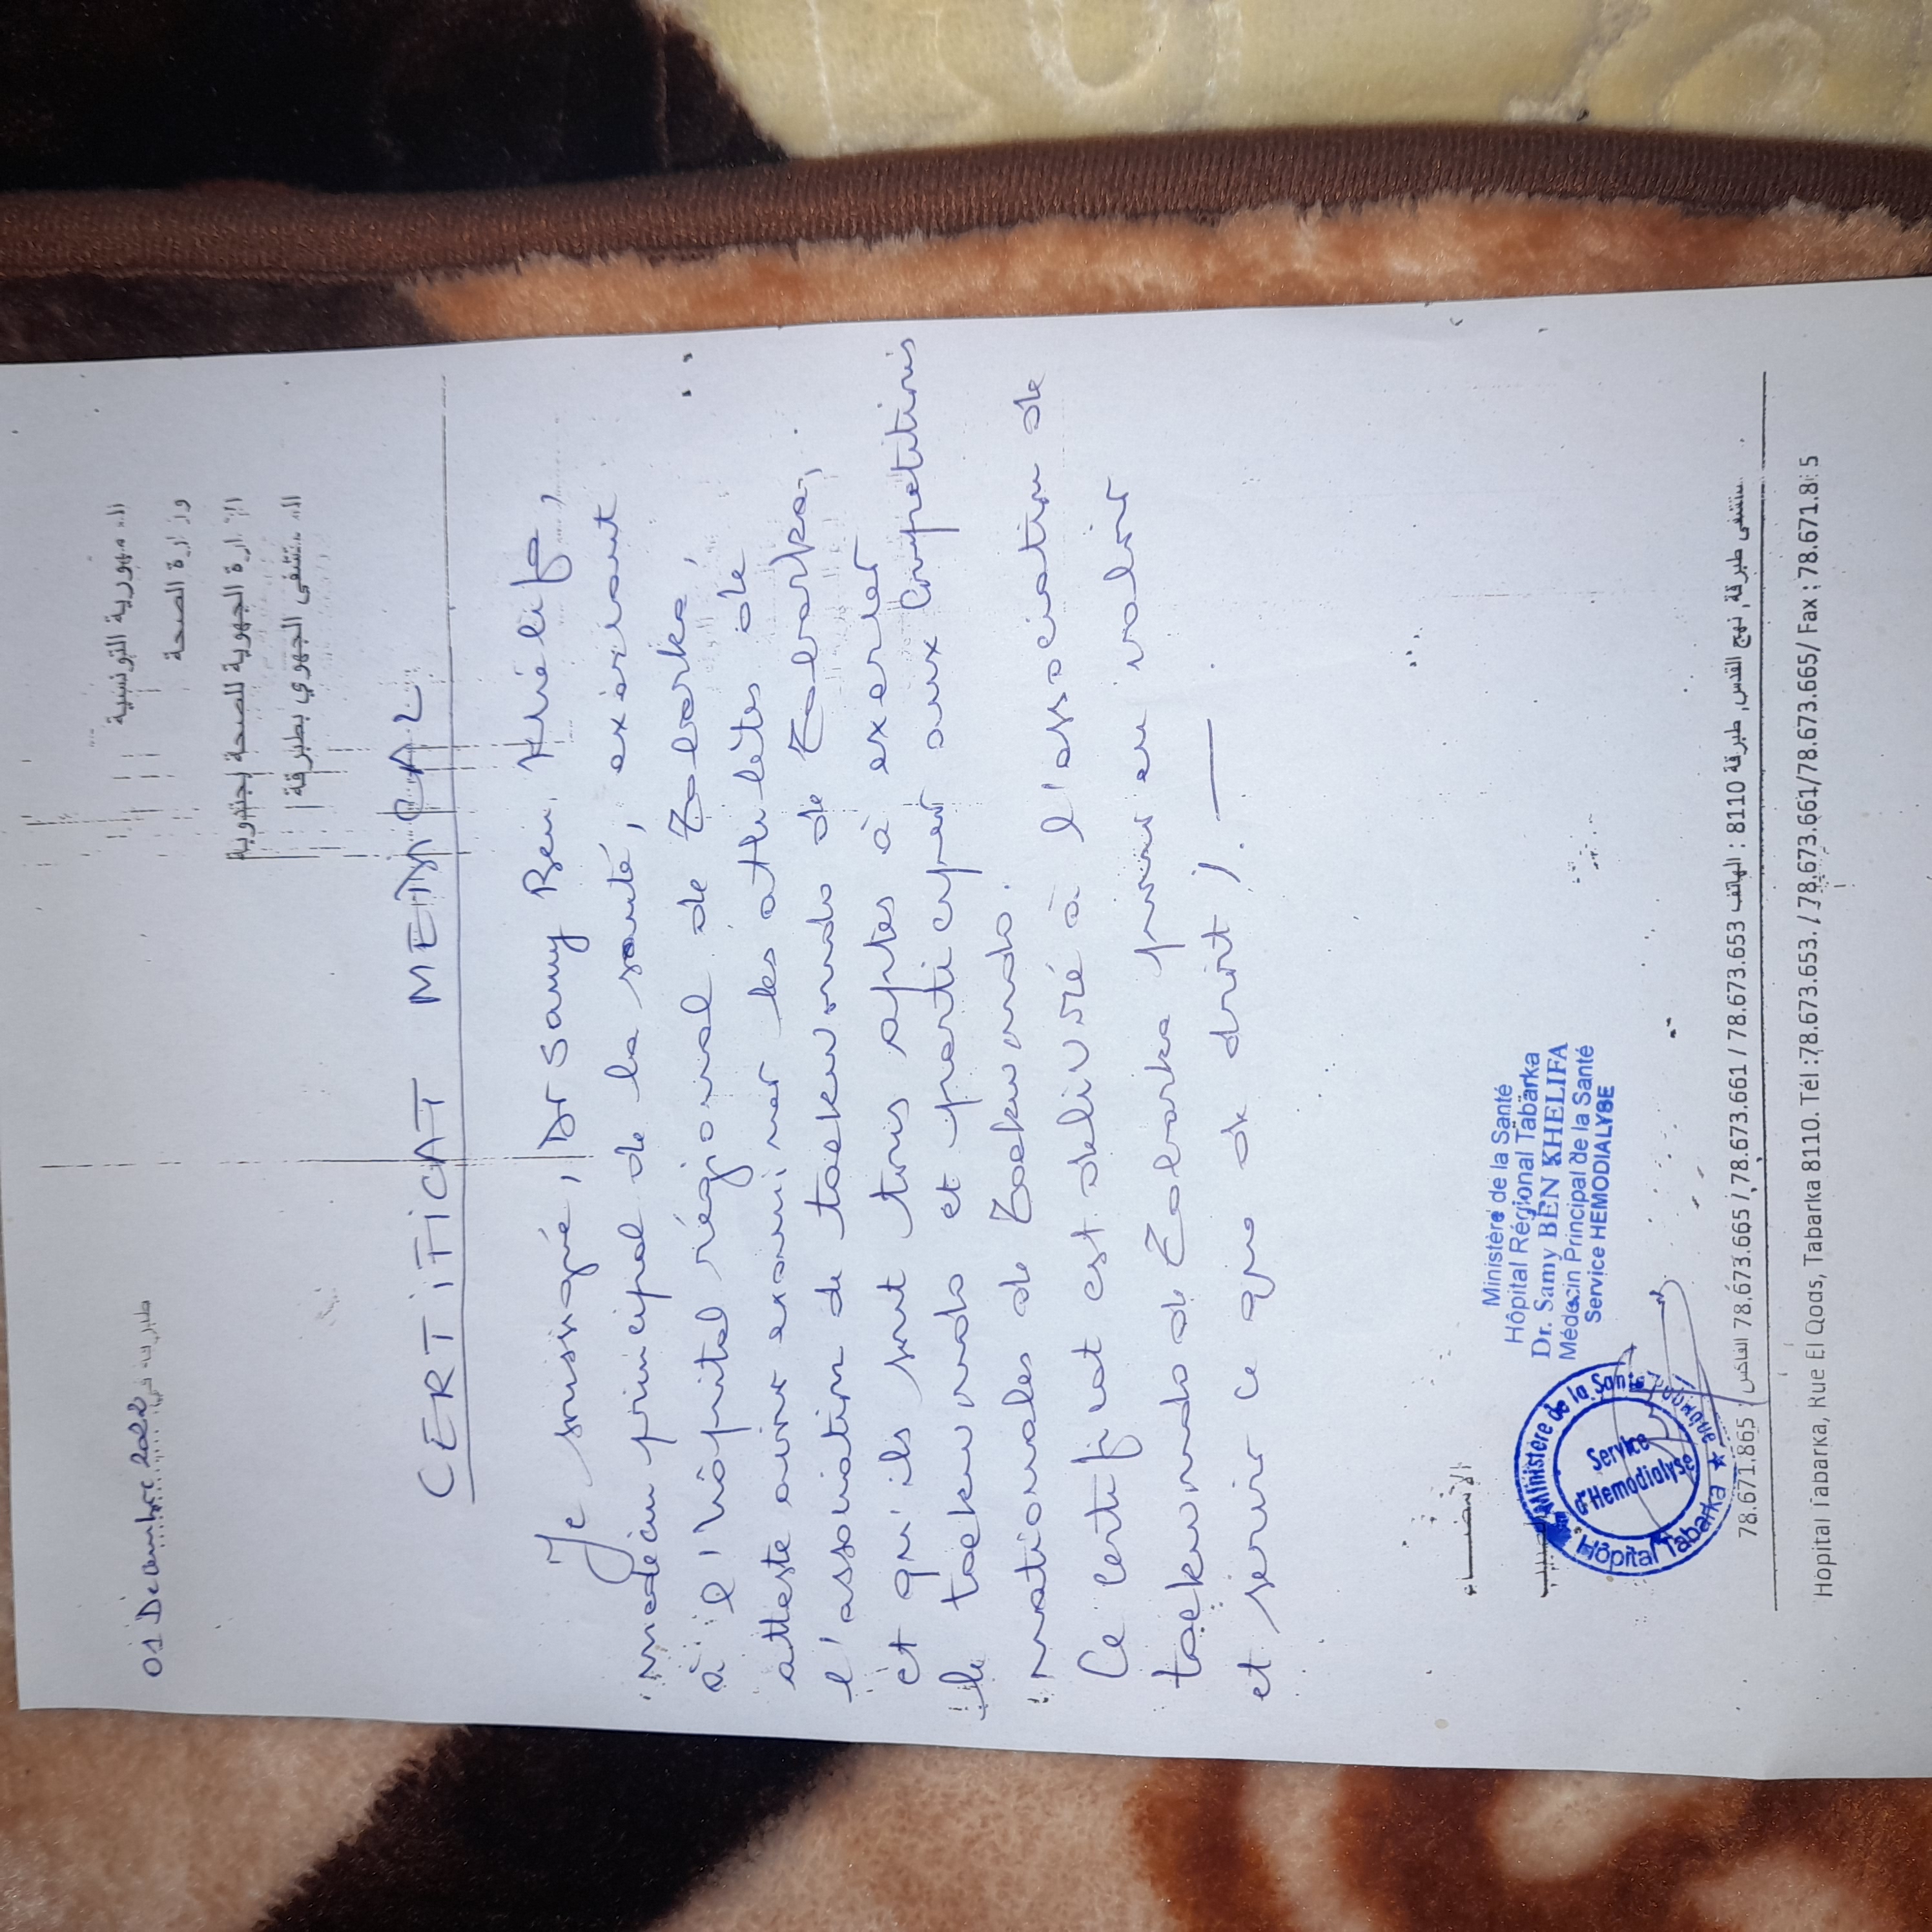 الجمهورية التونسية
وزارة الصحة
الإدارة الجهوية للصحة بجندوبة
المستشفى الجهوي بطبرقة
01 Decembre 2022 طبرقة في
CERTIFICAT MEDICAL
Je soussigné, Dr Samy Ben Khélifa,
medecin principal de la santé, exercant
à l'hôpital régional de Tabarka
atteste avoir examiner les athletes de
l'association de taekwondo de Tabarka,
et qu'ils sont tous aptes à exercer
le taekwondo et participer aux Competitions
nationales de Taekwondo.
Ce certificat est delivré à l'association de
taekwondo de Tabarka pour en valoir
et servir ce que de droit /. —
الإمضاء
Ministère de la Santé
Hôpital Régional Tabarka
Dr. Samy BEN KHELIFA
Médecin Principal de la Santé
Service HEMODIALYSE
Ministère de la Santé Publique
Service
d'Hemodialyse
Hôpital Tabarka
مستشفى طبرقة, نهج القدس, طبرقة 8110 : الهاتف 78.673.653 / 78.673.661 / 78.673.665 / الفاكس 78.671.865
Hopital Tabarka, Rue El Qods, Tabarka 8110. Tél :78.673.653. / 78.673.661/78.673.665/ Fax : 78.671.865